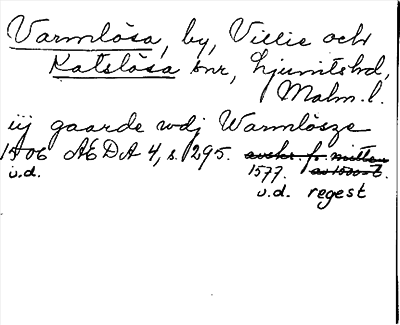 Varmlösa, by, Villie och
Katslösa snr, Ljunitshd,
Malm. l.
iij gaarde wdj Warmlösze
1506 AEDA 4, s. 295. avskr. fr. mitten
u.d. 1577. av 1500-t.
u.d. regest